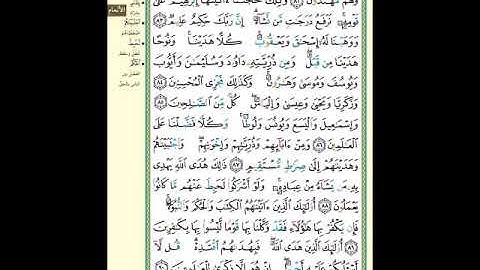 وَهُم مُّهْتَدُونَ ۝٨٢ وَتِلْكَ حُجَّتُنَا ءَاتَيْنَاهَا إِبْرَاهِيمَ عَلَىٰ
قَوْمِهِۦ ۚ نَرْفَعُ دَرَجَاتٍ مَّن نَّشَاءُ ۗ إِنَّ رَبَّكَ حَكِيمٌ عَلِيمٌ ۝٨٣
وَوَهَبْنَا لَهُۥ إِسْحَاقَ وَيَعْقُوبَ ۚ كُلًّا هَدَيْنَا ۚ وَنُوحًا
هَدَيْنَا مِن قَبْلُ ۖ وَمِن ذُرِّيَّتِهِۦ دَاوُۥدَ وَسُلَيْمَانَ وَأَيُّوبَ
وَيُوسُفَ وَمُوسَىٰ وَهَارُونَ ۚ وَكَذَٰلِكَ نَجْزِي الْمُحْسِنِينَ ۝٨٤
وَزَكَرِيَّا وَيَحْيَىٰ وَعِيسَىٰ وَإِلْيَاسَ ۖ كُلٌّ مِّنَ الصَّالِحِينَ ۝٨٥
وَإِسْمَاعِيلَ وَالْيَسَعَ وَيُونُسَ وَلُوطًا ۚ وَكُلًّا فَضَّلْنَا عَلَى
الْعَالَمِينَ ۝٨٦ وَمِنْ ءَابَائِهِمْ وَذُرِّيَّاتِهِمْ وَإِخْوَانِهِمْ ۖ وَاجْتَبَيْنَاهُمْ
وَهَدَيْنَاهُمْ إِلَىٰ صِرَاطٍ مُّسْتَقِيمٍ ۝٨٧ ذَٰلِكَ هُدَى اللَّهِ يَهْدِي
بِهِۦ مَن يَشَاءُ مِنْ عِبَادِهِۦ ۚ وَلَوْ أَشْرَكُوا لَحَبِطَ عَنْهُم مَّا كَانُوا
يَعْمَلُونَ ۝٨٨ أُولَٰئِكَ الَّذِينَ ءَاتَيْنَاهُمُ الْكِتَابَ وَالْحُكْمَ وَالنُّبُوَّةَ ۚ
فَإِن يَكْفُرْ بِهَا هَٰؤُلَاءِ فَقَدْ وَكَّلْنَا بِهَا قَوْمًا لَّيْسُوا بِهَا بِكَافِرِينَ
۝٨٩ أُولَٰئِكَ الَّذِينَ هَدَى اللَّهُ ۖ فَبِهُدَاهُمُ اقْتَدِهْ ۗ قُل لَّا
أَسْأَلُكُمْ عَلَيْهِ أَجْرًا ۖ إِنْ هُوَ إِلَّا ذِكْرَىٰ لِلْعَالَمِينَ ۝٩٠